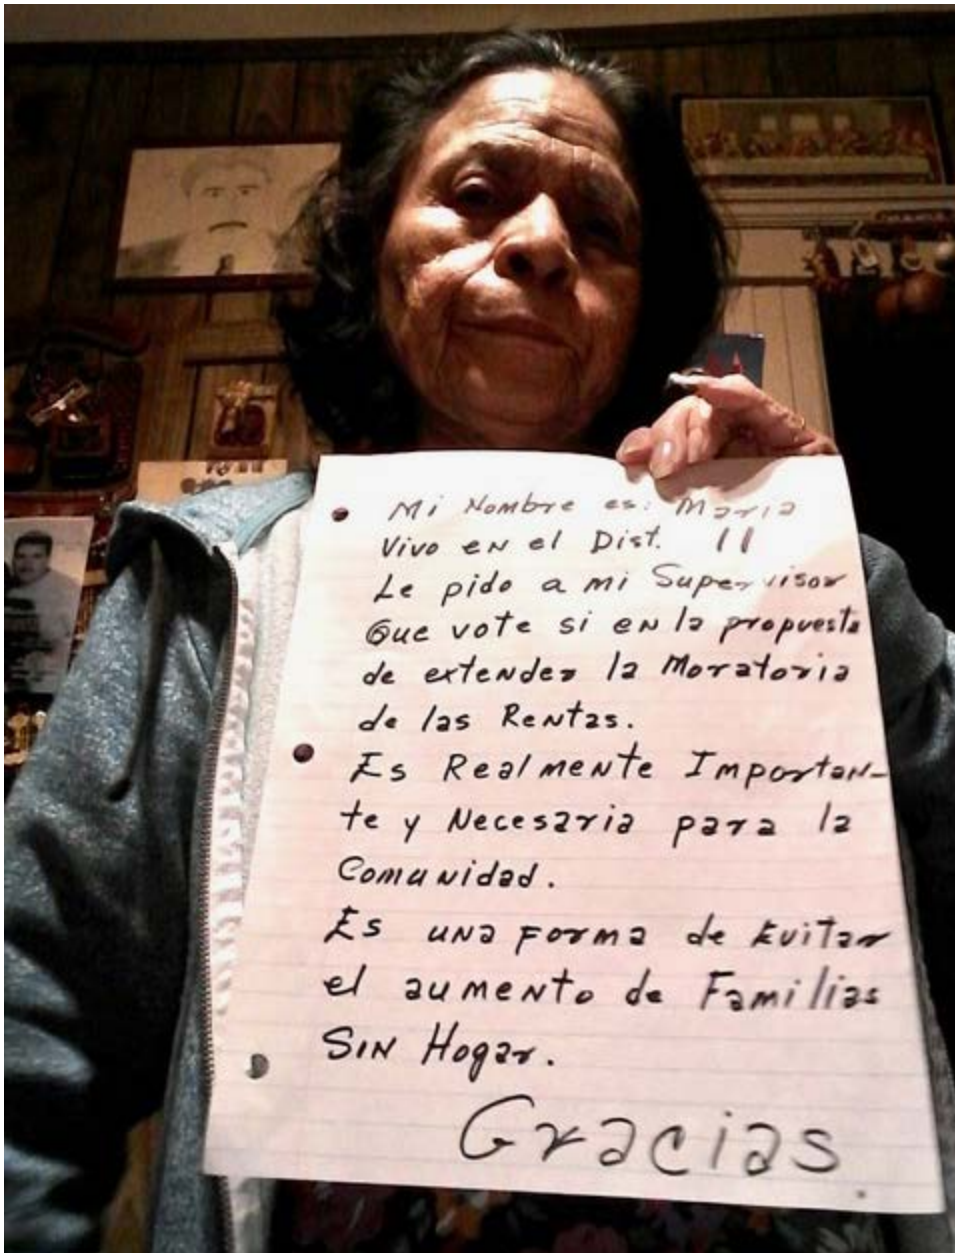 Mi Nombre es: Maria
Vivo en el Dist. 11
Le pido a mi Supervisor
Que vote si en la propuesta
de extender la Moratoria
de las Rentas.
Es Realmente Importan-
te y Necesaria para la
Comunidad.
Es una forma de Evitar
el aumento de Familias
Sin Hogar.
Gracias.